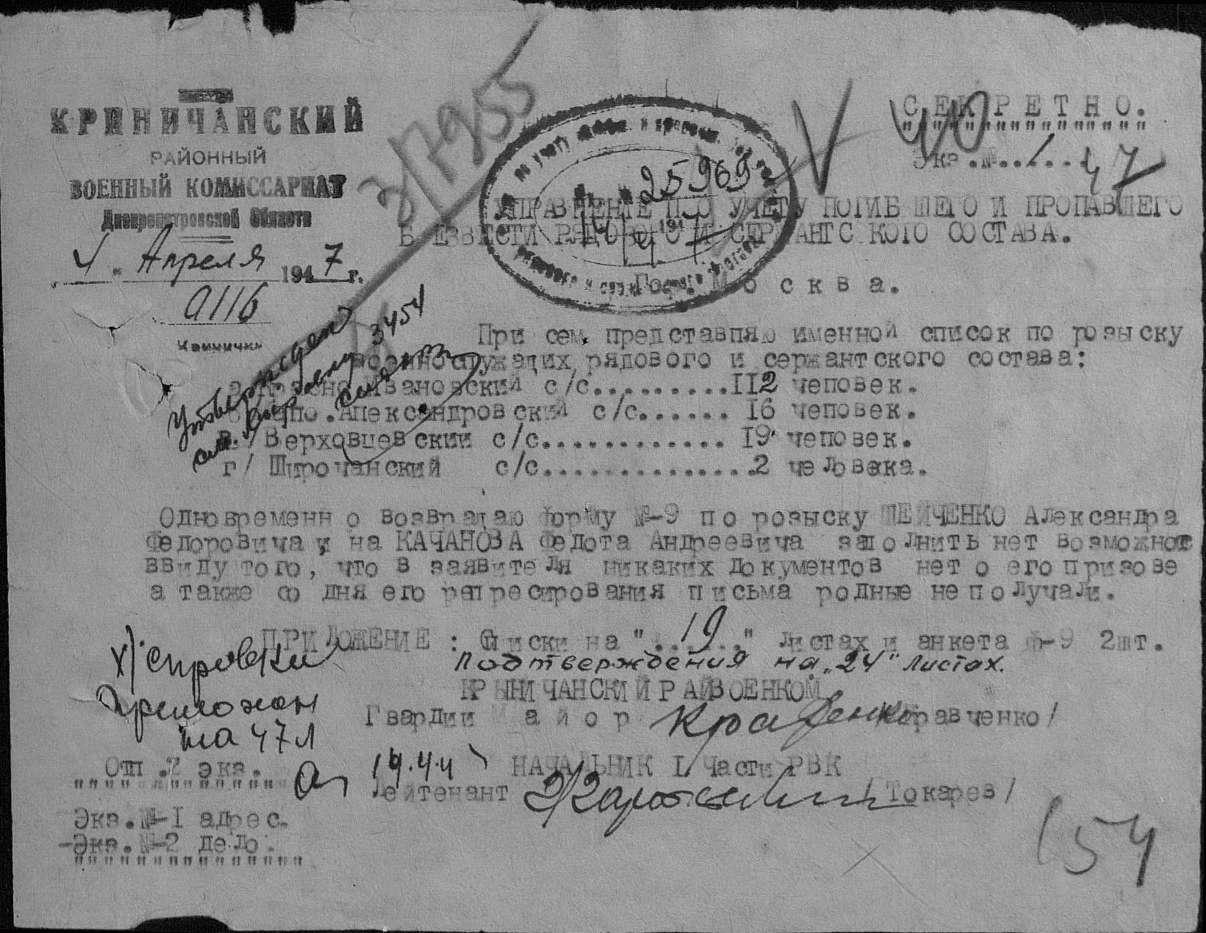 КРИНИЧАНСКИЙ
РАЙОННЫЙ
ВОЕННЫЙ КОМИССАРИАТ
Днепропетровской Области
4 " Апреля 1947 г.
0116
Криничи
3/7955
СЕКРЕТНО.
Экз.№..1..
25969
УПРАВЛЕНИЕ ПО УЧЕТУ ПОГИБШЕГО И ПРОПАВШЕГО
БЕЗВЕСТИ РЯДОВОГО И СЕРЖАНТСКОГО СОСТАВА.
Гор. Москва.
При сем представляю именной список по розыску
военнослужащих рядового и сержантского состава:
Ивановский с/с.......... 112 человек.
Александровский с/с...... 16 человек.
в/ Верховцевский с/с............ 19 человек.
г/ Широчанский с/с...............2 человека.
Утвержден
3454
Одновременно возвращаю форму №-9 по розыску ШЕЙЧЕНКО Александра
Федоровича и на КАЧАНОВА Федота Андреевича заполнить нет возможнос
ввиду того, что в заявителя никаких документов нет о его призове
а также со дня его репресирования письма родные не получали.
ПРИЛОЖЕНИЕ: Списки на "..19.." листах и анкета ф-9 2шт.
подтверждения на "24" листах.
х) справки
приложен
на 47л
КРЫНИЧАНСКИЙ РАЙВОЕНКОМ
Гвардии Майор Кравченко/
14.4.4
НАЧАЛЬНИК I Части РВК
Лейтенант /Токарев/
Отп. 2 экз.
Экз.№-1 адрес.
-Экз.№-2 дело.
154